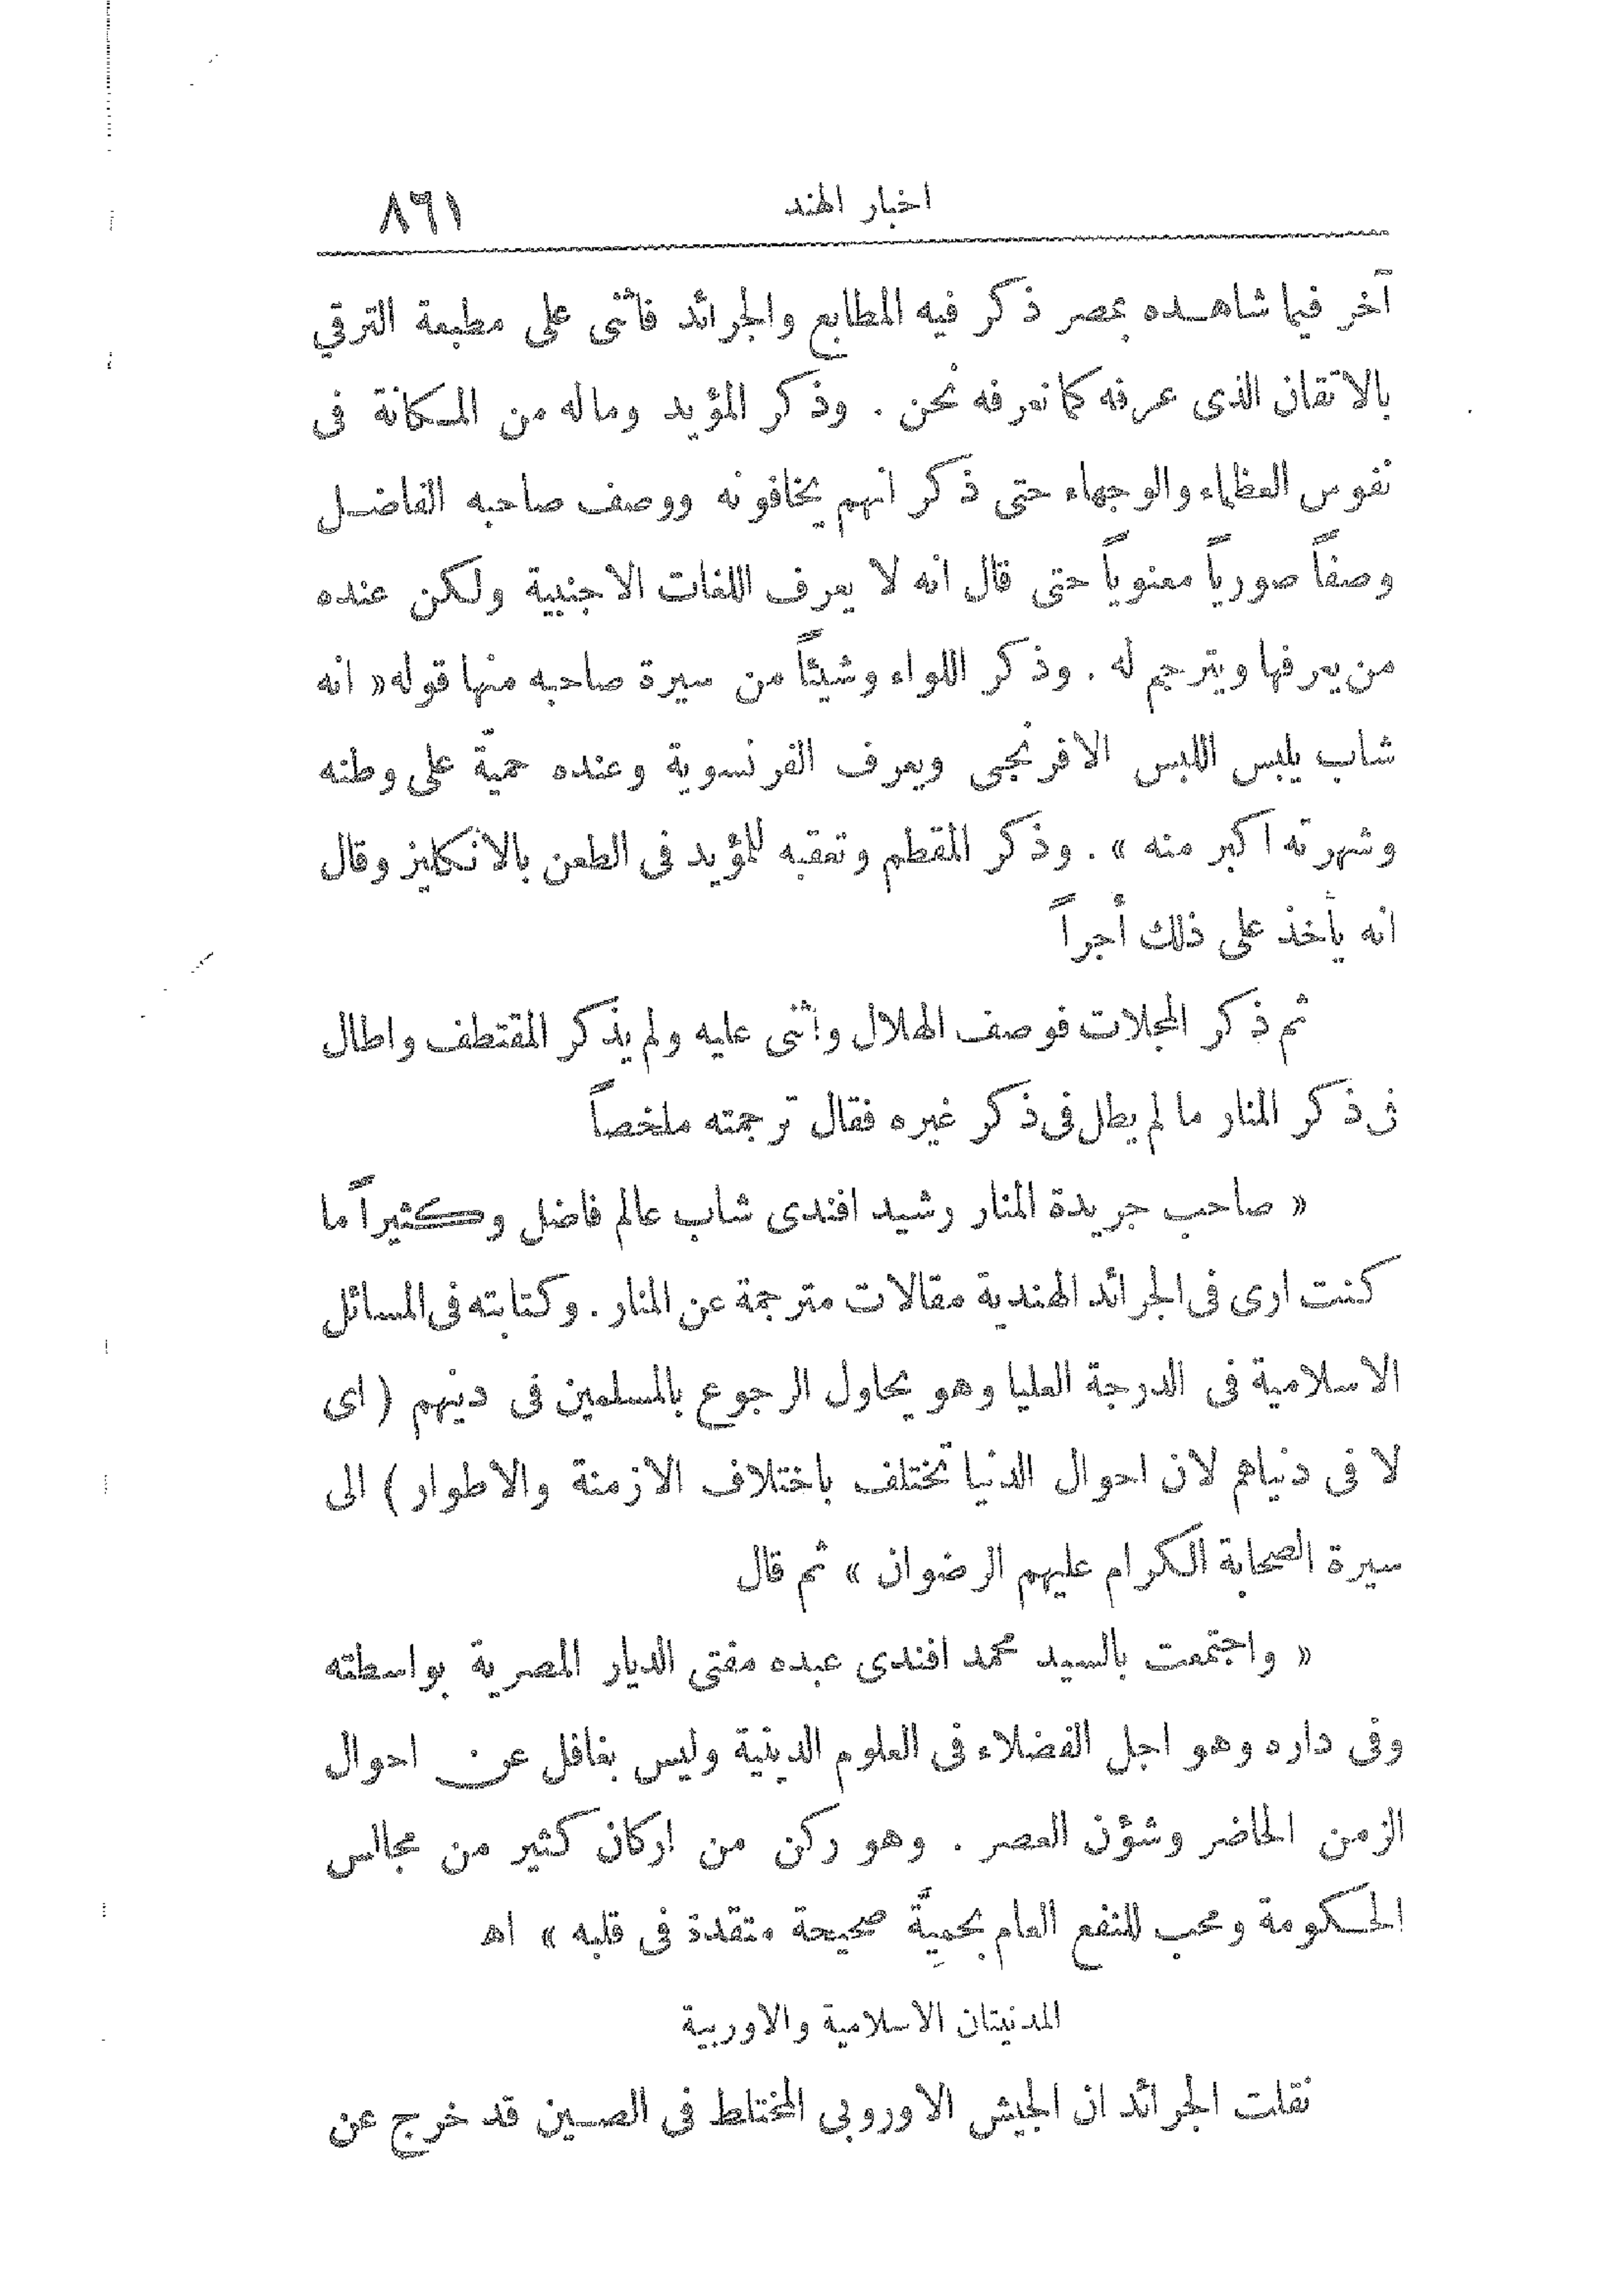 اخبار الهند ٨٦١
آخر فيما شاهده بمصر ذكر فيه المطابع والجرائد فاثنى على مطبعة الترقي
بالاتقان الذى عرفه كما نعرفه نحن . وذكر المؤيد وماله من المكانة فى
نفوس العظماء والوجهاء حتى ذكر انهم يخافونه ووصف صاحبه الفاضل
وصفاً صورياً معنوياً حتى قال انه لا يعرف اللغات الاجنبية ولكن عنده
من يعرفها ويترجم له . وذكر اللواء وشيئاً من سيرة صاحبه منها قوله « انه
شاب يلبس اللبس الافرنجى ويعرف الفرنسوية وعنده حميّة على وطنه
وشهرته اكبر منه » . وذكر المقطم وتعقبه للمؤيد فى الطعن بالانكليز وقال
انه يأخذ على ذلك أجراً
ثم ذكر المجلات فوصف الهلال واثنى عليه ولم يذكر المقتطف واطال
فى ذكر المنار ما لم يطل فى ذكر غيره فقال ترجمته ملخصاً
« صاحب جريدة المنار رشيد افندى شاب عالم فاضل وكثيراً ما
كنت ارى فى الجرائد الهندية مقالات مترجمة عن المنار . وكتابته فى المسائل
الاسلامية فى الدرجة العليا وهو يحاول الرجوع بالمسلمين فى دينهم ( اى
لا فى دنياهم لان احوال الدنيا تختلف باختلاف الازمنة والاطوار ) الى
سيرة الصحابة الكرام عليهم الرضوان » ثم قال
« واجتمعت بالسيد محمد افندى عبده مفتى الديار المصرية بواسطته
وفى داره وهو اجل الفضلاء فى العلوم الدينية وليس بغافل عن احوال
الزمن الحاضر وشؤن العصر . وهو ركن من اركان كثير من مجالس
الحكومة ومحب للنفع العام بحميَّة صحيحة متقدة فى قلبه » اهـ
المدنيتان الاسلامية والاوربية
نقلت الجرائد ان الجيش الاوروبى المختلط فى الصين قد خرج عن